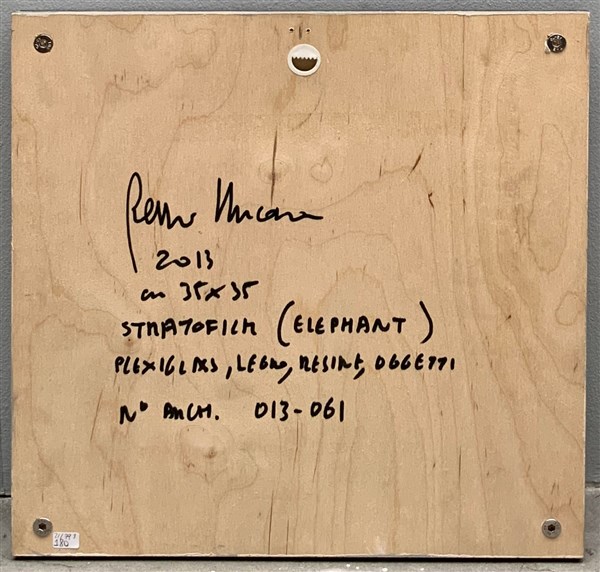 2013
cm 35x35
STRATOFILM (ELEPHANT)
PLEXIGLASS, LEGNO, RESINE, OGGETTI
N° ARCH. 013-061
180